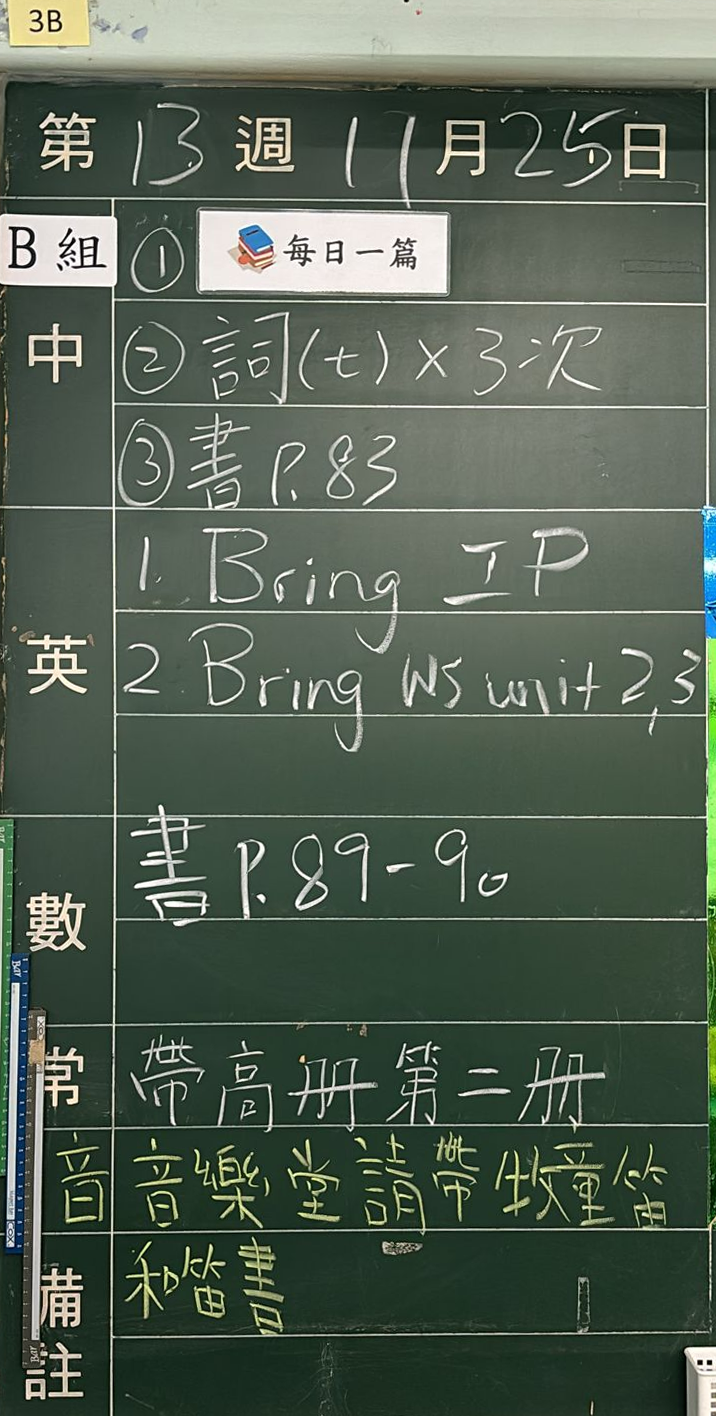 3B
第 13 週 11 月 25 日
B 組 ① 每日一篇
中 ② 詞(七) × 3次
③ 書 P.83
1. Bring IP
英 2. Bring WS unit 2,3
書 P.89-90
數
常 帶高册第二册
音 音樂堂請帶牧童笛
和笛書
備註